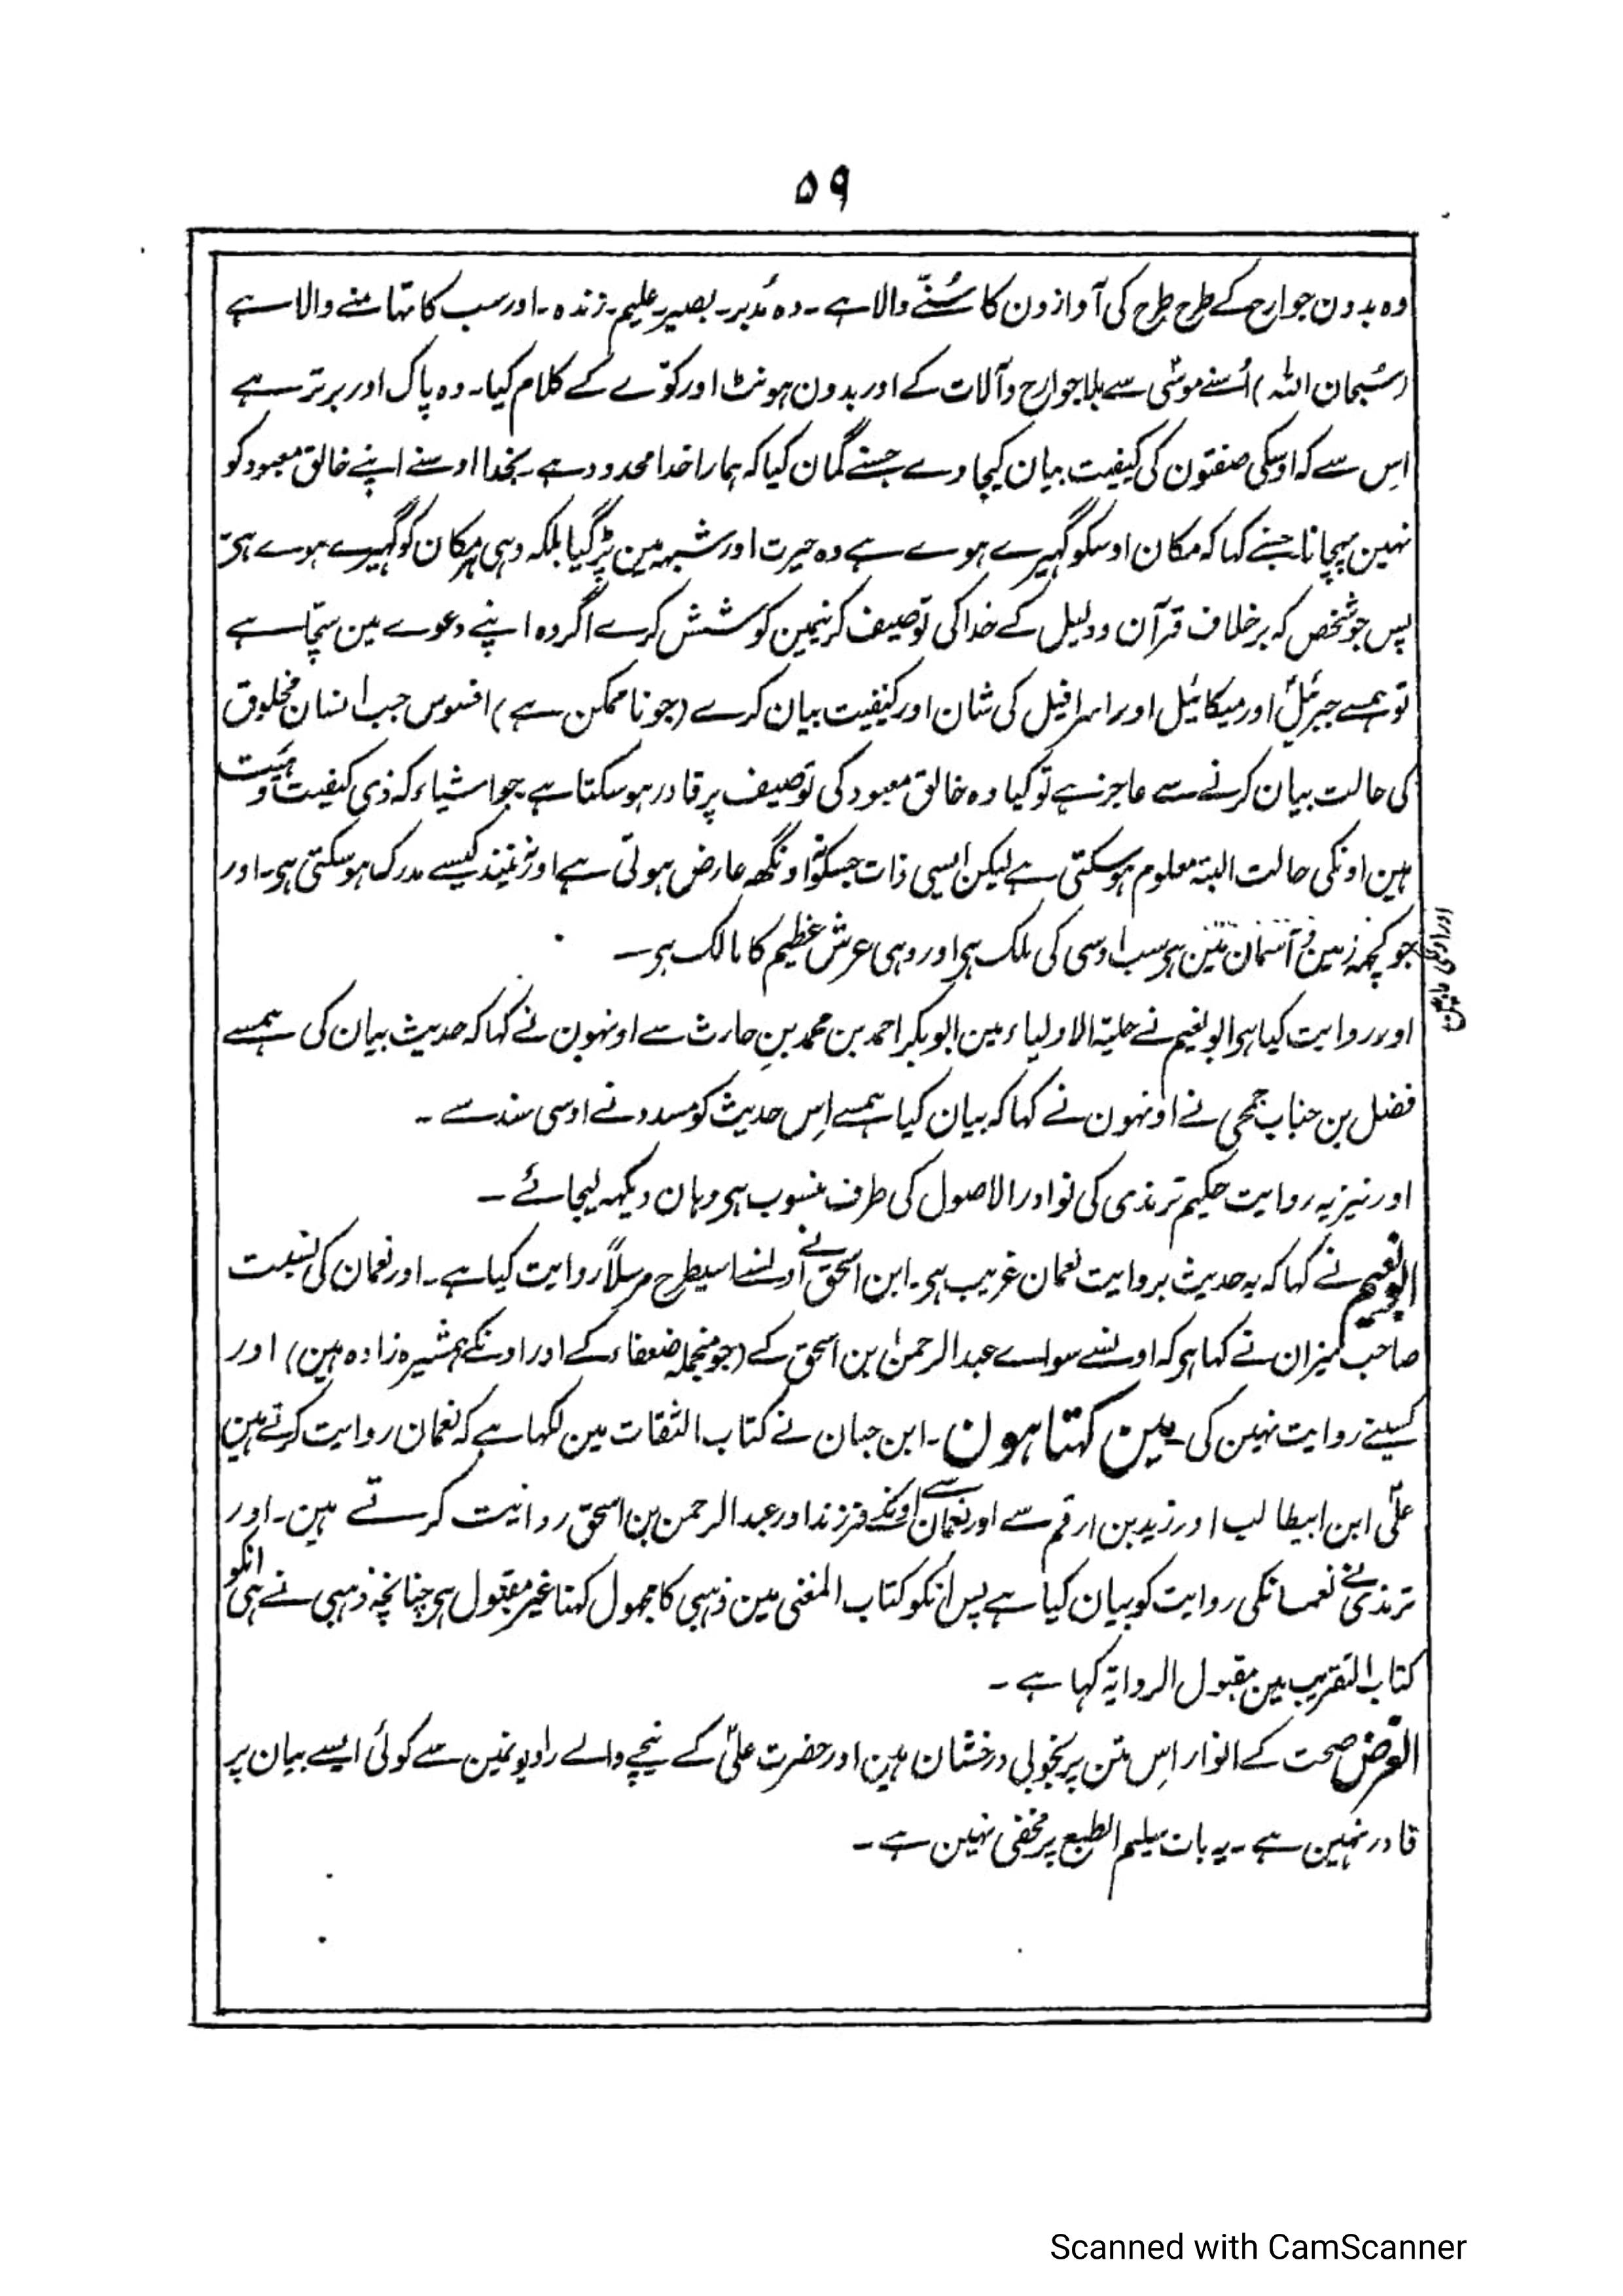 ۵۹
وہ بدون جوارح کے طرح طرح کی آوازون کا سُننے والا ہے۔ وہ مُدبر۔ بصیر۔ علیم۔ زندہ۔ اور سب کا تہامنے والا ہے
(سُبحان اللہ) اُسنے موسٰی سے بلا جوارح و آلات کے اور بدون ہونٹ اور کوّے کے کلام کیا۔ وہ پاک اور برتر ہے
اِس سے کہ اوسکی صفتون کی کیفیت بیان کیجاوے جسنے گمان کیا کہ ہمارا خدا محدود ہے۔ بخدا اوسنے اپنے خالق معبود کو
نہین پہچانا جسنے کہا کہ مکان اوسکو گہیرے ہوے ہے وہ حیرت اور شبہہ مین پڑ گیا بلکہ وہی ہر مکان کو گہیرے ہوے ہی
پس جو شخص کہ برخلاف قرآن و دلیل کے خدا کی توصیف کرنیمین کوشش کرے اگر وہ اپنے دعوے مین سچّا ہے
تو ہمسے جبرئیلؑ اور میکائیل اور اسرافیل کی شان اور کیفیت بیان کرے (جو ناممکن ہے) افسوس جب انسان مخلوق
کی حالت بیان کرنے سے عاجز ہے تو کیا وہ خالق معبود کی توصیف پر قادر ہو سکتا ہے جو اشیاء کہ ذی کیفیت و ہیئت
ہین اونکی حالت البتہ معلوم ہو سکتی ہے لیکن ایسی ذات جسکو نہ اونگھ عارض ہوتی ہے اور نہ نیند کیسے مدرک ہو سکتی ہی۔ اور
جو کچہہ زمین و آسمان مین ہی سب اوسی کی ملک ہی اور وہی عرش عظیم کا مالک ہی۔
اور روایت کیا ہی ابو نعیم نے حلیۃ الاولیاء مین ابو بکر احمد بن محمد بن حارث سے اونہون نے کہا کہ حدیث بیان کی ہمسے
فضل بن حباب جمحی نے اونہون نے کہا کہ بیان کیا ہمسے اِس حدیث کو مسدد نے اوسی سند سے۔
اور نیز یہ روایت حکیم ترمذی کی نوادر الاصول کی طرف منسوب ہی وہان دیکہہ لیجائے۔
ابو نعیم نے کہا کہ یہ حدیث بروایت نعمان غریب ہی۔ ابن اسحٰق نے اونسے اسیطرح مرسلاً روایت کیا ہے۔ اور نعمان کی نسبت
صاحب میزان نے کہا ہی کہ اونسے سواے عبد الرحمٰن بن اسحٰق کے (جو منجملہ ضعفاء کے اور اونکے ہمشیرہ زادہ ہین) اور
کسینے روایت نہین کی۔ مین کہتا ہون۔ ابن حبان نے کتاب الثقات مین لکہا ہے کہ نعمان روایت کرتے ہین
علیؓ ابن ابیطالب اور زید بن ارقم سے اور نعمان سے اونکے فرزند اور عبد الرحمن بن اسحٰق روایت کرتے ہین۔ اور
ترمذی نے نعمانکی روایت کو بیان کیا ہے پس انکو کتاب المغنی مین ذہبی کا مجہول کہنا غیر مقبول ہی چنانچہ ذہبی نے ہی انکو
کتاب التقریب مین مقبول الروایۃ کہا ہے۔
الغرض صحت کے انوار اِس متن پر بخوبی درخشان ہین اور حضرت علیؓ کے نیچے والے راویونمین سے کوئی ایسے بیان پر
قادر نہین ہے۔ یہ بات سلیم الطبع پر مخفی نہین ہے۔
Scanned with CamScanner